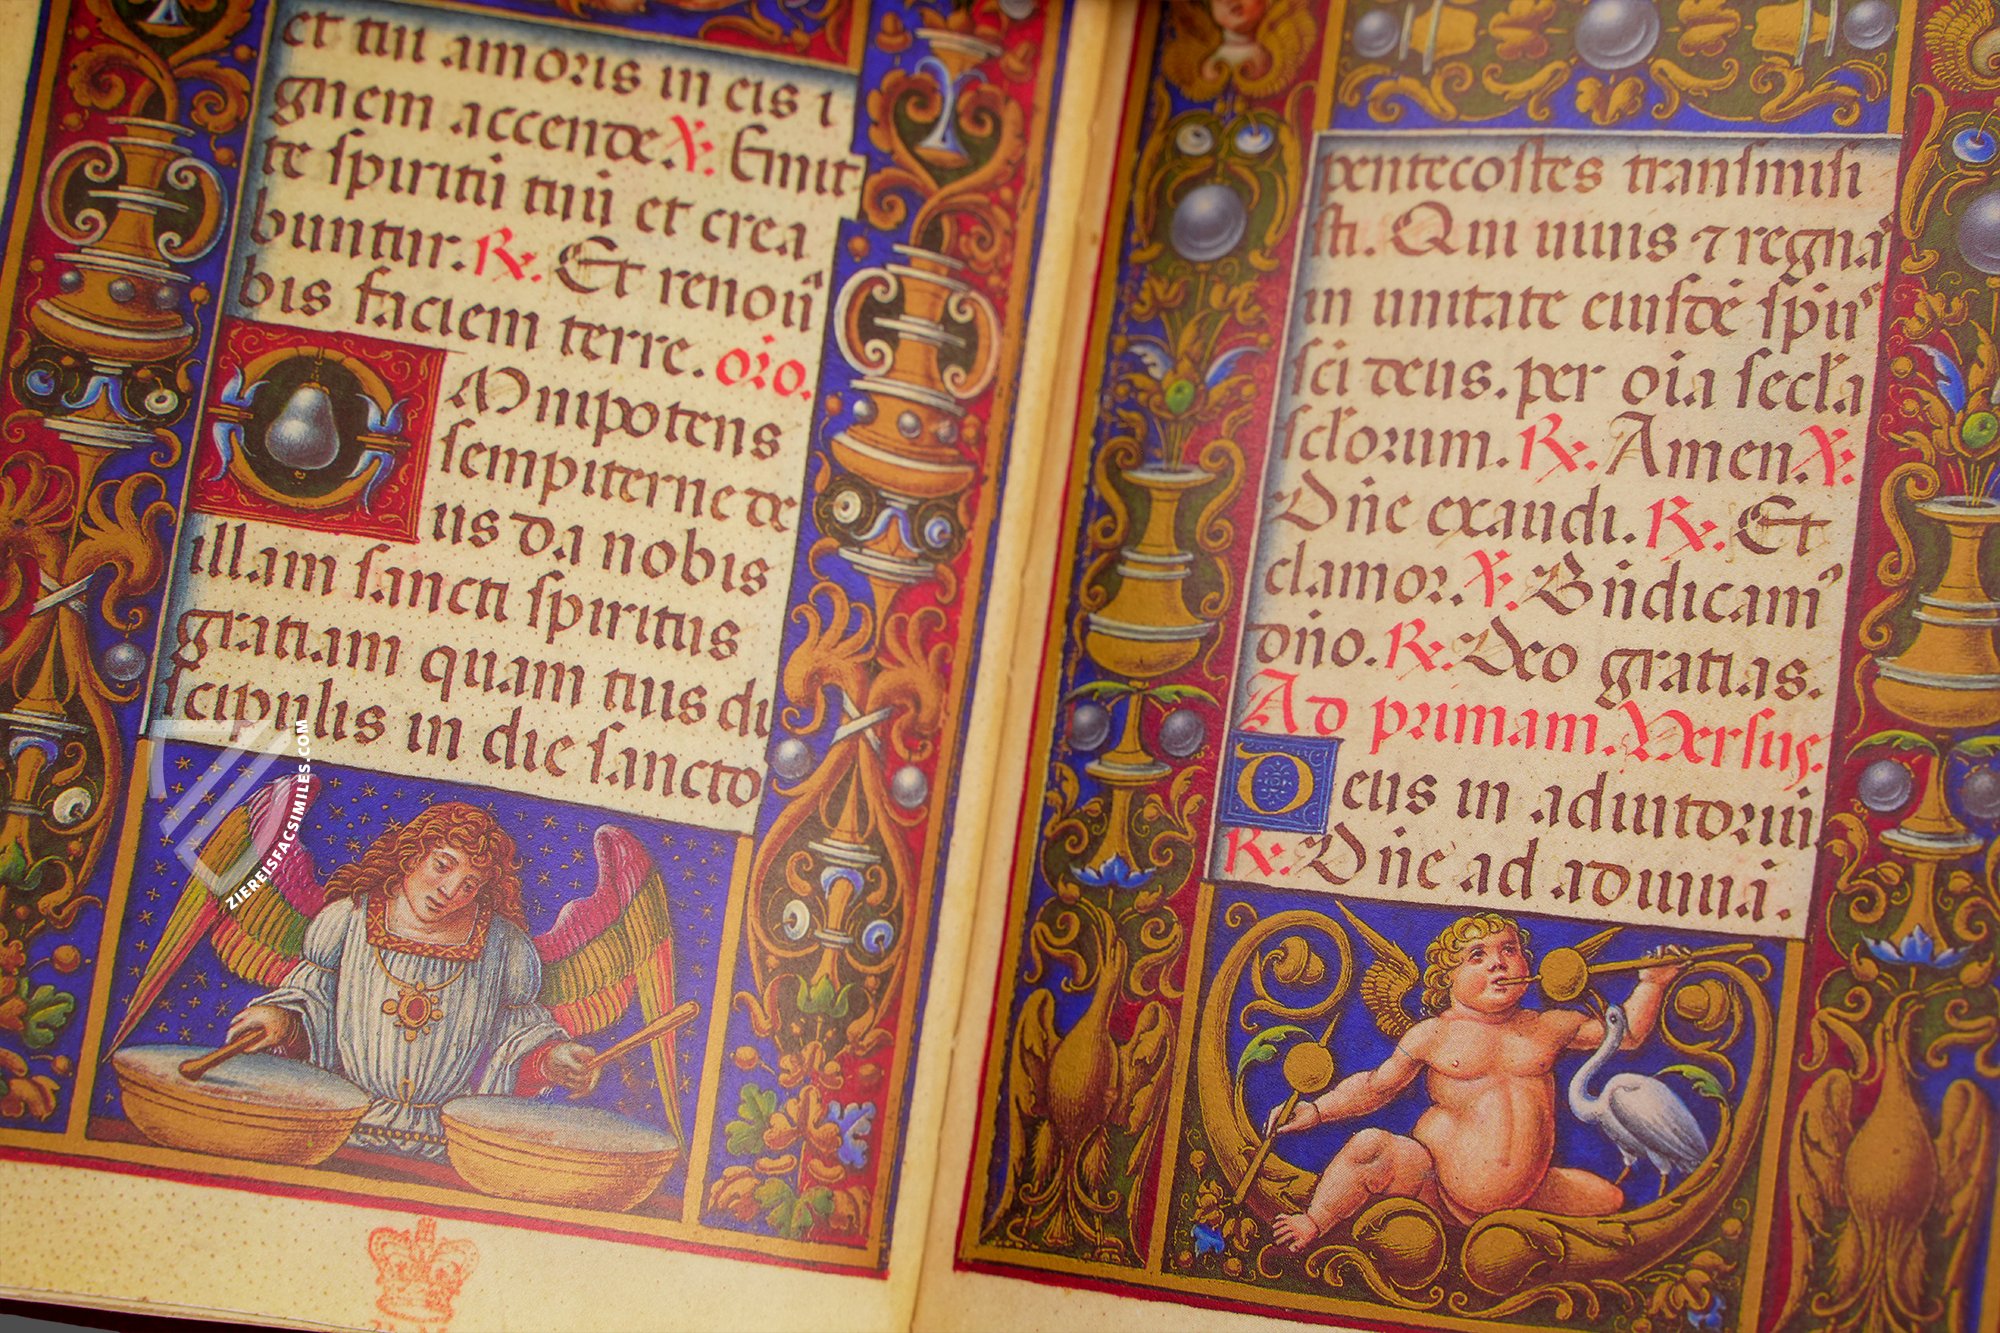 et tui amoris in eis i
gnem accende. V. Emit
te spiritū tuū et crea
buntur. R. Et renoua
bis faciem terre. oro.
OMnipotens
sempiterne de
us da nobis
illam sancti spiritus
gratiam quam tuis di
scipulis in die sancto
pentecostes transmisi
sti. Qui uiuis ⁊ regna
in unitate eiusdē spir
sci deus. per oīa secl'a
scl'orum. R. Amen. V.
Dn̄e exaudi. R. Et
clamor. V. Bn̄dicam'
dn̄o. R. Deo gratias.
Ad primam. Versus.
Deus in adiutoriū.
R. Dn̄e ad adiuuā.
ZIEREISFACSIMILES.COM